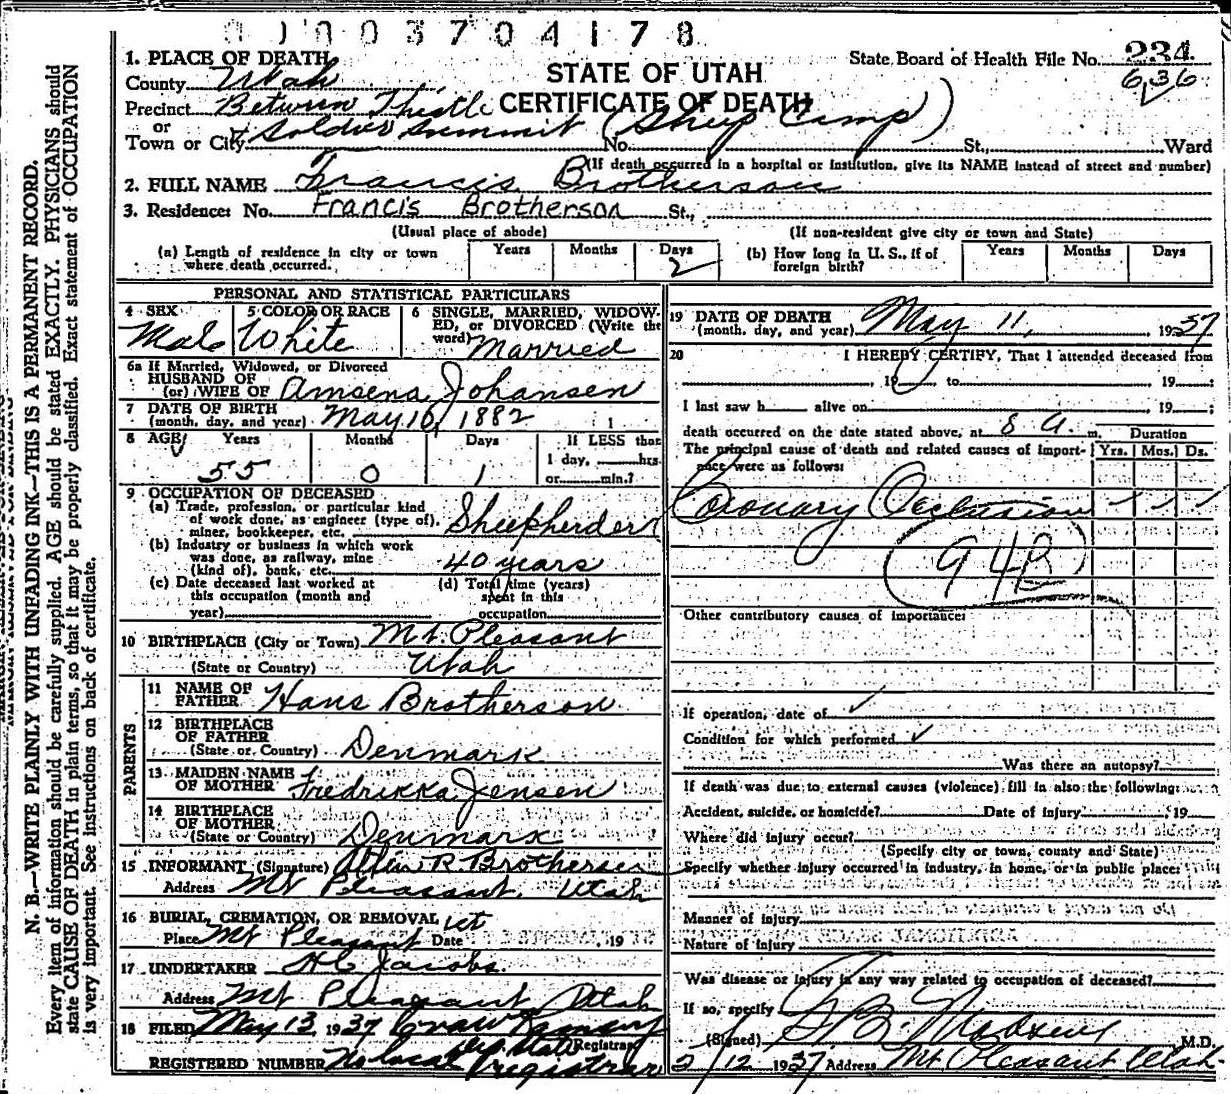 0 0 0 3 7 0 4 1 7 8
1. PLACE OF DEATH
State Board of Health File No. 234
636
County Utah
STATE OF UTAH
CERTIFICATE OF DEATH
Precinct Between Thistle
or
Town or City & Soldier Summit (Sheep Camp) No. St., Ward
(If death occurred in a hospital or institution, give its NAME instead of street and number)
2. FULL NAME Francis Brotherson
3. Residence: No. Francis Brotherson St.,
(Usual place of abode) (If non-resident give city or town and State)
(a) Length of residence in city or town where death occurred. Years Months Days 2
(b) How long in U. S., if of foreign birth? Years Months Days
PERSONAL AND STATISTICAL PARTICULARS
4 SEX Male
5 COLOR OR RACE White
6 SINGLE, MARRIED, WIDOWED, or DIVORCED (Write the word) Married
6a If Married, Widowed, or Divorced
HUSBAND OF
(or) WIFE OF Amsena Johansen
7 DATE OF BIRTH
(month, day, and year) May 10, 1882
8 AGE Years Months Days If LESS than
1 day, hrs.
55 0 1 or min.?
9 OCCUPATION OF DECEASED
(a) Trade, profession, or particular kind
of work done, as engineer (type of),
miner, bookkeeper, etc. Sheepherder
(b) Industry or business in which work
was done, as railway, mine
(kind of), bank, etc. 40 years
(c) Date deceased last worked at
this occupation (month and
year)
(d) Total time (years)
spent in this
occupation
10 BIRTHPLACE (City or Town) Mt. Pleasant
(State or Country) Utah
PARENTS
11 NAME OF
FATHER Hans Brotherson
12 BIRTHPLACE
OF FATHER
(State or Country) Denmark
13 MAIDEN NAME
OF MOTHER Fredrikka Jensen
14 BIRTHPLACE
OF MOTHER
(State or Country) Denmark
15 INFORMANT (Signature) R Brotherson
Address Mt Pleasant, Utah
16 BURIAL, CREMATION, OR REMOVAL
Place Mt Pleasant Date , 19
17 UNDERTAKER H C Jacobs
Address Mt Pleasant Utah
18 FILED May 13 1937
Dep State Registrar
REGISTERED NUMBER No local registrar
19 DATE OF DEATH
(month, day, and year) May 11, 1937
20 I HEREBY CERTIFY, That I attended deceased from
, 19 to 19 ;
I last saw h alive on , 19 ;
death occurred on the date stated above, at 8 a. m. Duration
The principal cause of death and related causes of importance were as follows: Yrs. Mos. Ds.
Coronary Occlusion
94B
Other contributory causes of importance:
If operation, date of ✓
Condition for which performed ✓
Was there an autopsy?
If death was due to external causes (violence) fill in also the following:
Accident, suicide, or homicide? Date of injury 19
Where did injury occur?
(Specify city or town, county and State)
Specify whether injury occurred in industry, in home, or in public place:
Manner of injury
Nature of injury
Was disease or injury in any way related to occupation of deceased?
If so, specify
(Signed) M.D.
5/12 1937 Address Mt Pleasant Utah
N. B.—WRITE PLAINLY WITH UNFADING INK—THIS IS A PERMANENT RECORD.
Every item of information should be carefully supplied. AGE should be stated EXACTLY. PHYSICIANS should
state CAUSE OF DEATH in plain terms, so that it may be properly classified. Exact statement of OCCUPATION
is very important. See instructions on back of certificate.